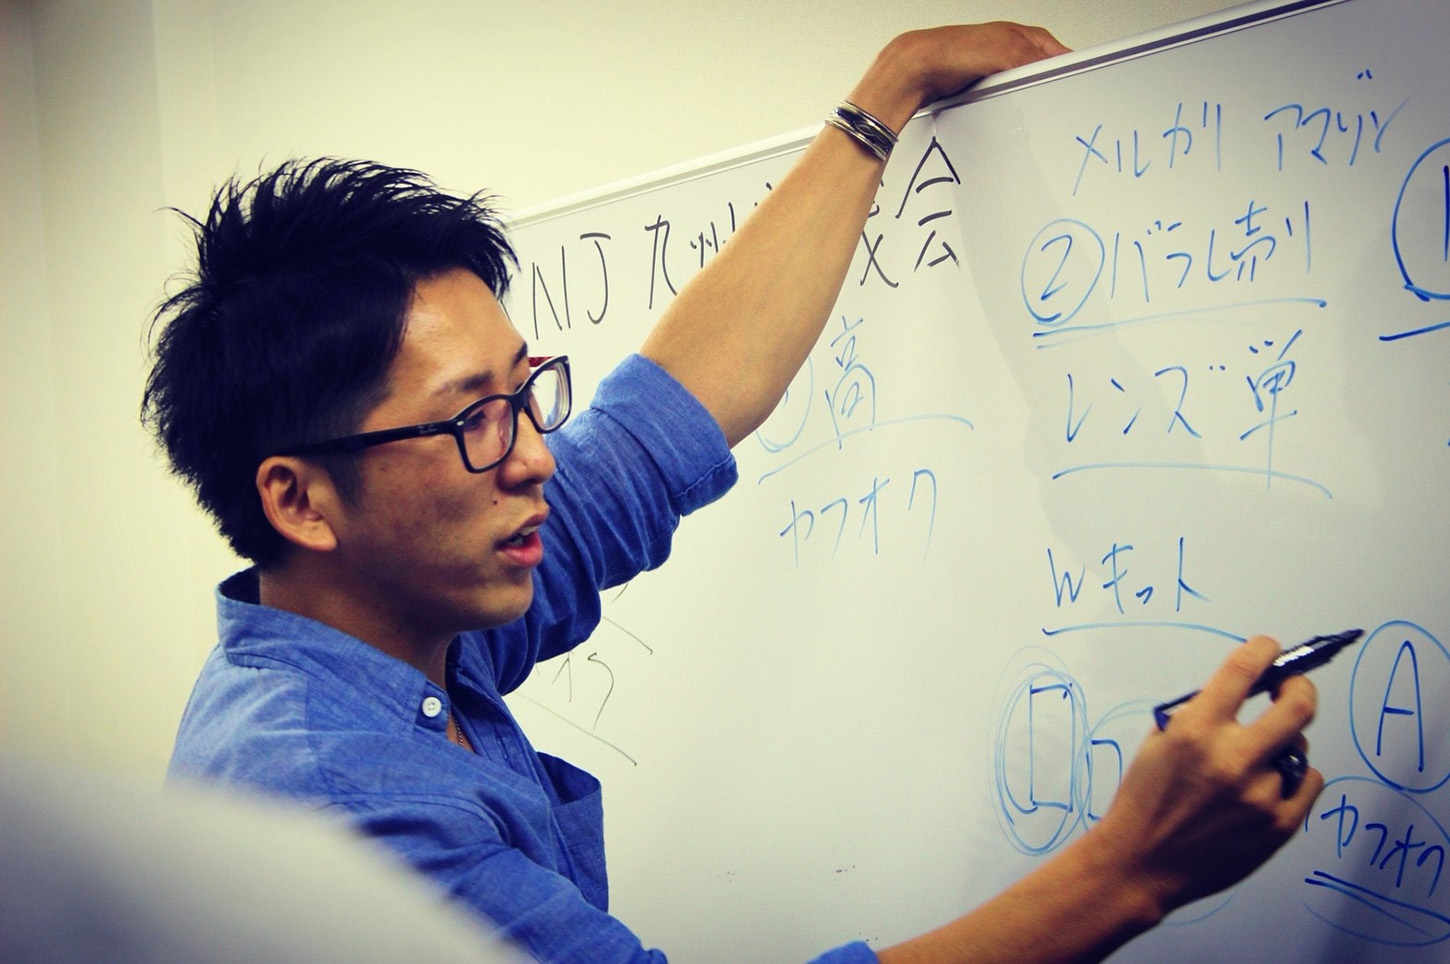 NJ 九州 会
高
ヤフオク
メルカリ アマゾン
② バラし売り
レンズ単
Wキット
A
ヤフオク